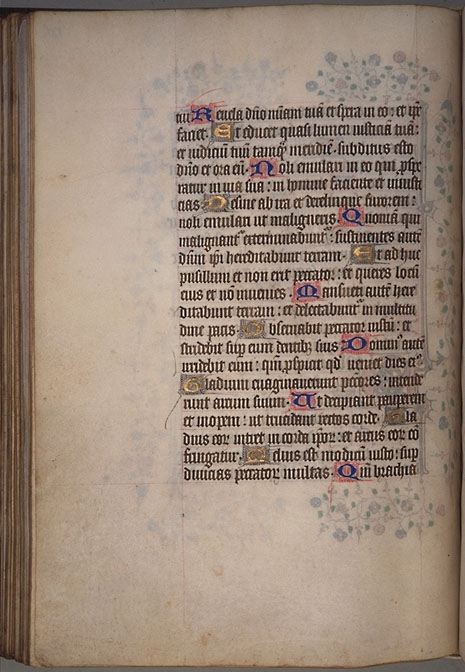 tui. Reuela dño uiam tuã et spera in eo: et ipẽ
faciet. Et educet quasi lumen iusticiã tuã:
et iudiciũ tuũ tamq̃ meridiẽ: subditus esto
dño et ora eũ. Noli emulari in eo qui ꝓspe
ratur in uia sua: in homine faciente et iniusti
cias. Desine ab ira et derelinque furorem:
noli emulari ut maligneris. Quoniam qui
malignant̃ exterminabunt̃: sustinentes autẽ
dñm ip̃i hereditabunt terram. Et ad huc
pusillum et non erit peccator: et queres locũ
eius et nõ inuenies. Mansueti autẽ here
ditabunt terram: et delectabunt̃ in multitu
dine pacis. Obseruabit peccator iustũ: et
stridebit suꝑ eum dentibꝫ suis. Dominus autẽ
irridebit eum: qm̃ ꝓspicit qd̃ ueniet dies eiꝰ
Gladium euaginauerunt pc̃cores: intende
runt arcum suum. Ut decipiant pauperem
et inopem: ut trucidant rectos corde. Gla
dius eoꝝ intret in corda ip̃oꝝ: et arcus eoꝝ cõ
fringatur. Melius est modicũ iusto: suꝑ
diuicias peccatoꝝ multas. Qm̃ brachia